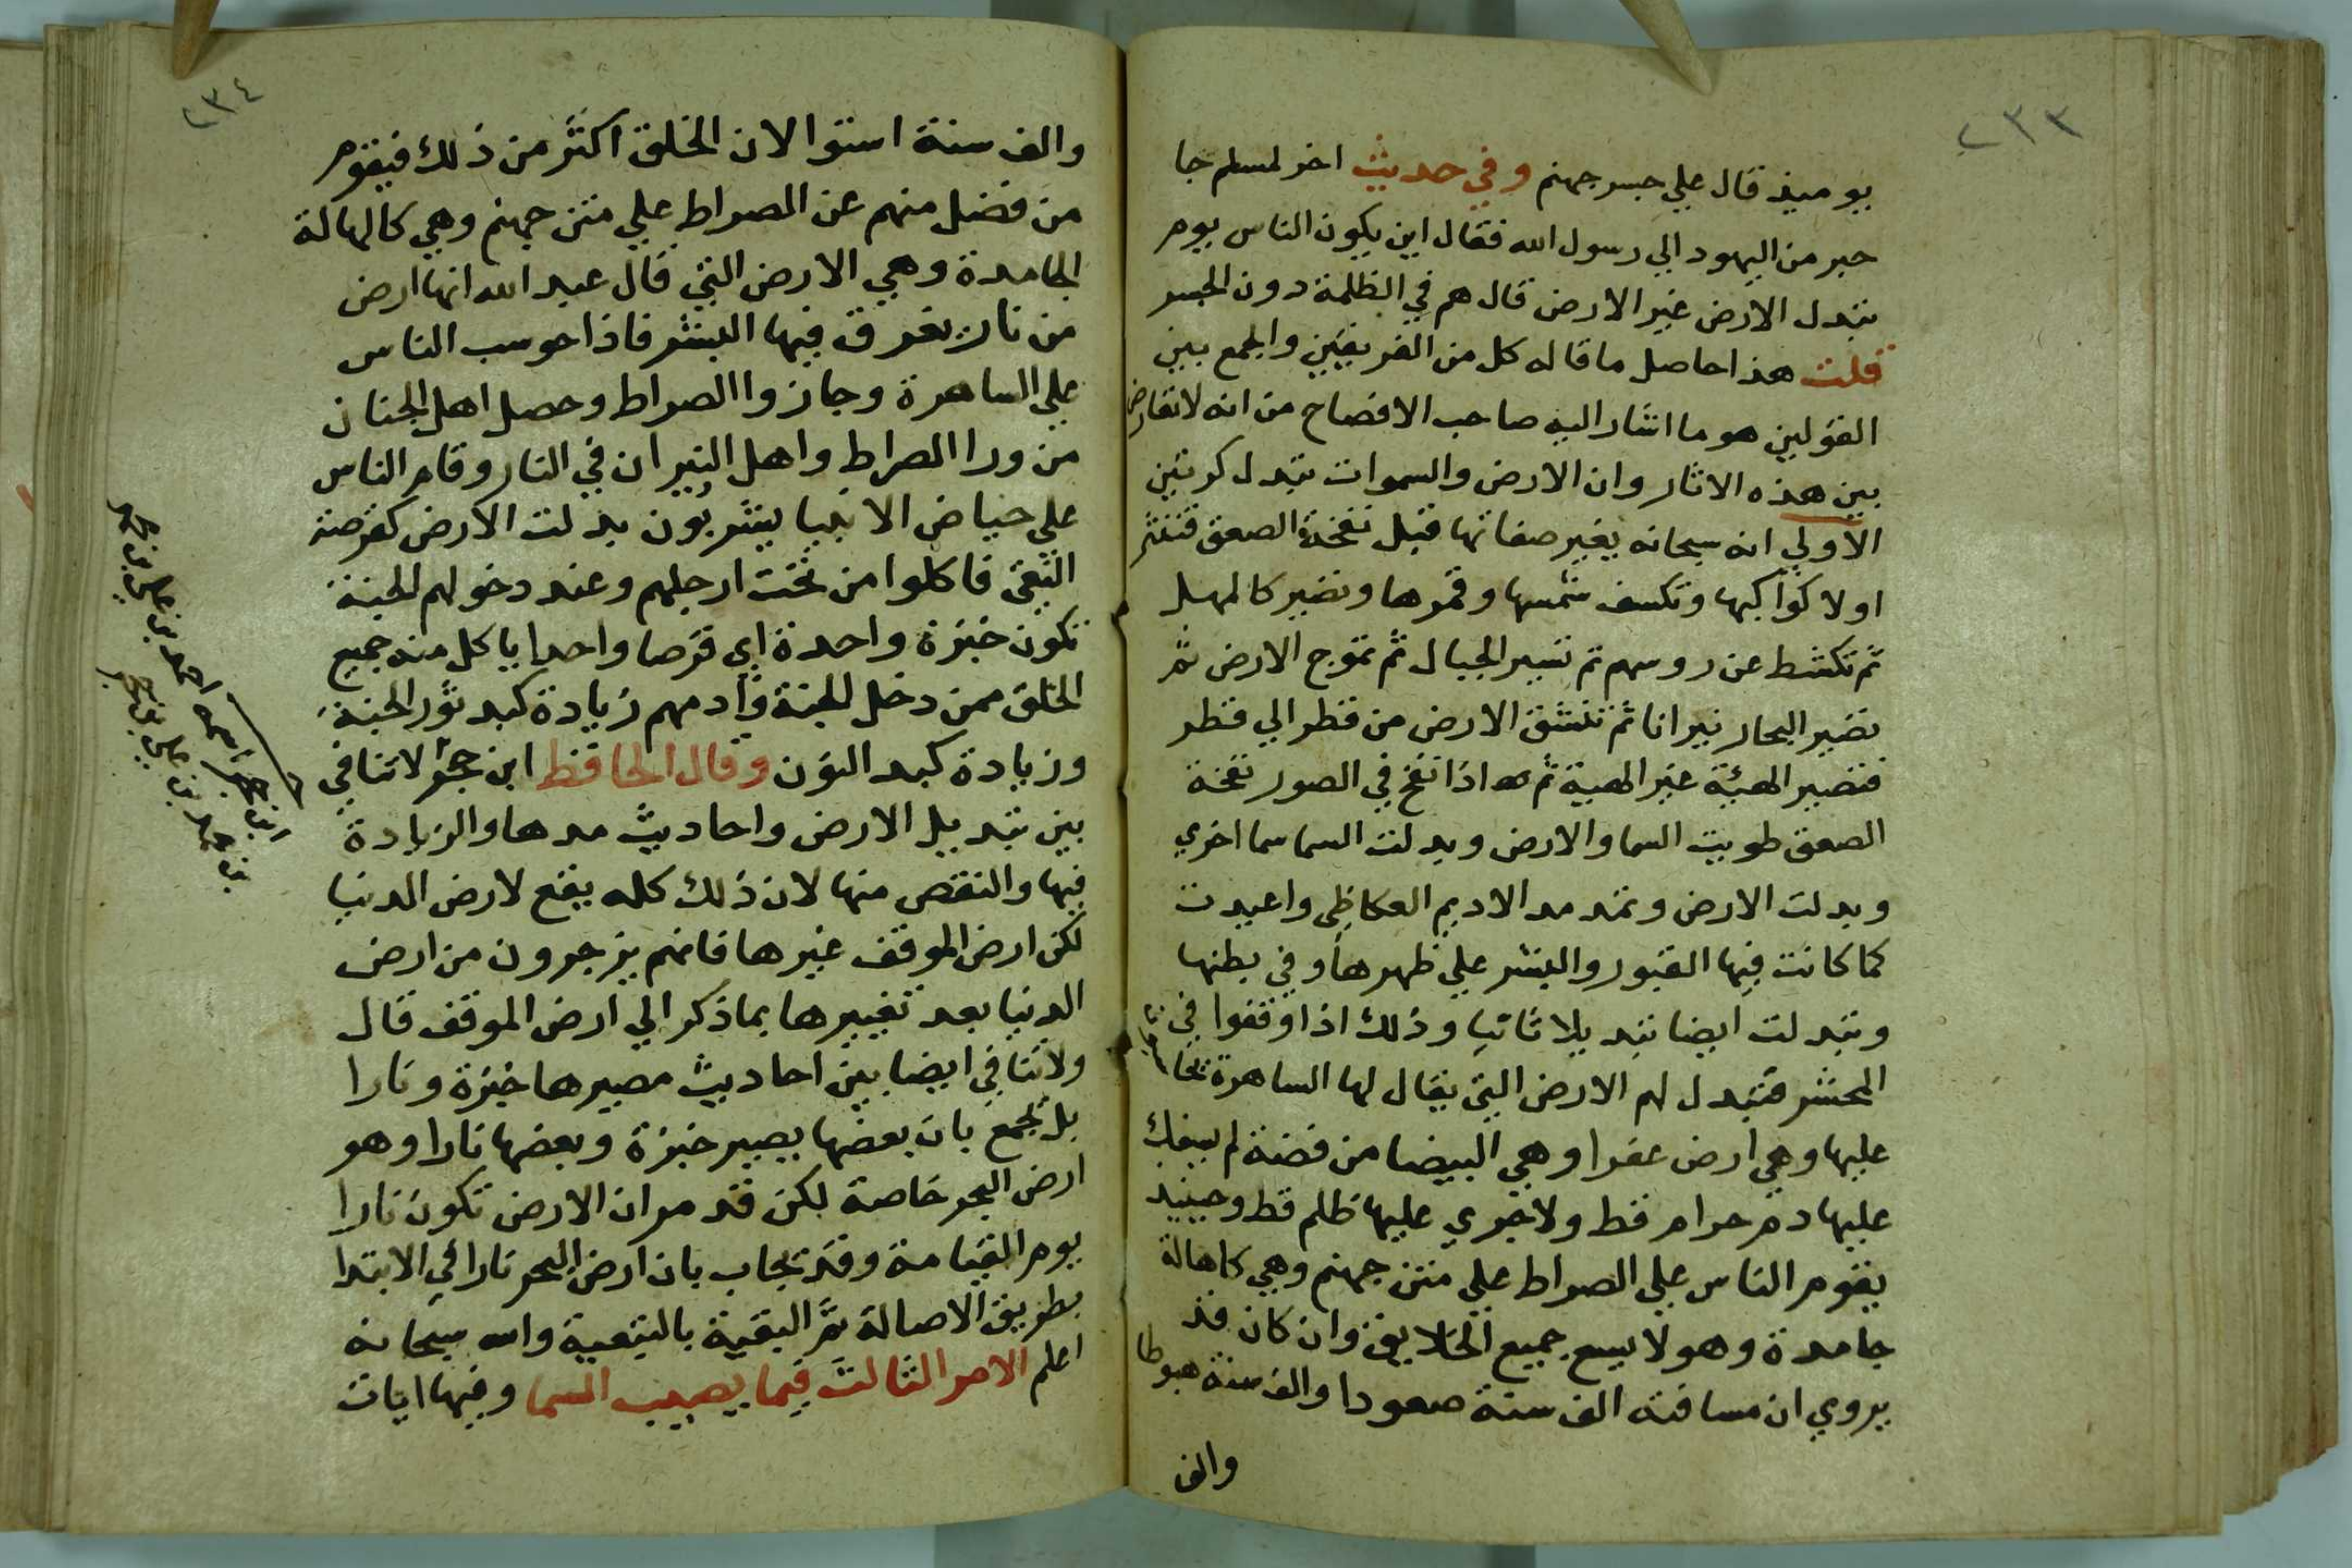 ٢٣٣
يوميذ قال علي جسر جهنم وفي حديث اخر لمسلم جا
حبر من اليهود الي رسول الله فقال اين يكون الناس يوم
تبدل الارض غير الارض قال هم في الظلمة دون الجسر
قلت هذا حاصل ما قاله كل من الفريقين والجمع بين
القولين هو ما اشار اليه صاحب الافصاح من انه لا تعارض
بين هذه الاثار وان الارض والسموات تبدل كرتين
الاولي انه سبحانه يغير صفاتها قبل نفخة الصعق فتنثر
اولا كواكبها وتكسف شمسها وقمرها وتصير كالمهل
ثم تكشط عن روسهم ثم تسير الجبال ثم تموج الارض ثم
تصير البحار نيرانا ثم تنشق الارض من قطر الي قطر
فتصير الهيئة غير الهيية ثم اذا نفخ في الصور نفخة
الصعق طويت السما والارض وبدلت السما سما اخري
وبدلت الارض وتمد مد الاديم العكاظي واعيدت
كما كانت فيها القبور والبشر علي ظهرها وفي بطنها
وتبدلت ايضا تبديلا ثانيا وذلك اذا وقفوا في
المحشر فتبدل لهم الارض التي يقال لها الساهرة يحاسبون
عليها وهي ارض عفرا وهي البيضا من فضة لم يسفك
عليها دم حرام قط ولا جري عليها ظلم قط وحينيد
يقوم الناس علي الصراط علي متن جهنم وهي كاهالة
جامدة وهو لا يسع جميع الخلايق وان كان قد
يروي ان مسافته الف سنة صعودا والف سنة هبوطا
والف
٢٣٤
والف سنة استوا لان الخلق اكثر من ذلك فيقوم
من فضل منهم عن الصراط علي متن جهنم وهي كالهالة
الجامدة وهي الارض التي قال عبد الله انها ارض
من نار يغرق فيها البشر فاذا حوسب الناس
علي الساهرة وجازوا الصراط وحصل اهل الجنان
من ورا الصراط واهل النيران في النار وقام الناس
علي حياض الانبيا يشربون بدلت الارض كقرصة
النقي فاكلوا من تحت ارجلهم وعند دخولهم الجنة
تكون خبزة واحدة اي قرصا واحدا ياكل منه جميع
الخلق ممن دخل الجنة وادمهم زيادة كبد ثور الجنة
وزيادة كبد النون وقال الحافظ ابن حجر لا تنافي
بين تبديل الارض واحاديث مدها والزيادة
فيها والنقص منها لان ذلك كله يقع لارض الدنيا
لكن ارض الموقف غيرها فانهم يزجرون من ارض
الدنيا بعد تغييرها بما ذكر الي ارض الموقف قال
ولا تنافي ايضا بين احاديث مصيرها خبزة ونارا
بل نجمع بان بعضها يصير خبزة وبعضها نارا وهو
ارض البحر خاصة لكن قد مر ان الارض تكون نارا
يوم القيامة وقد يجاب بان ارض البحر نارا في الابتدا
بطريق الاصالة ثم البقية بالتبعية والله سبحانه
اعلم الامر الثالث فيما يصيب السما وفيها ايات
ابن حجر اسمه احمد بن علي بن محمد
بن محمد بن علي بن حجر